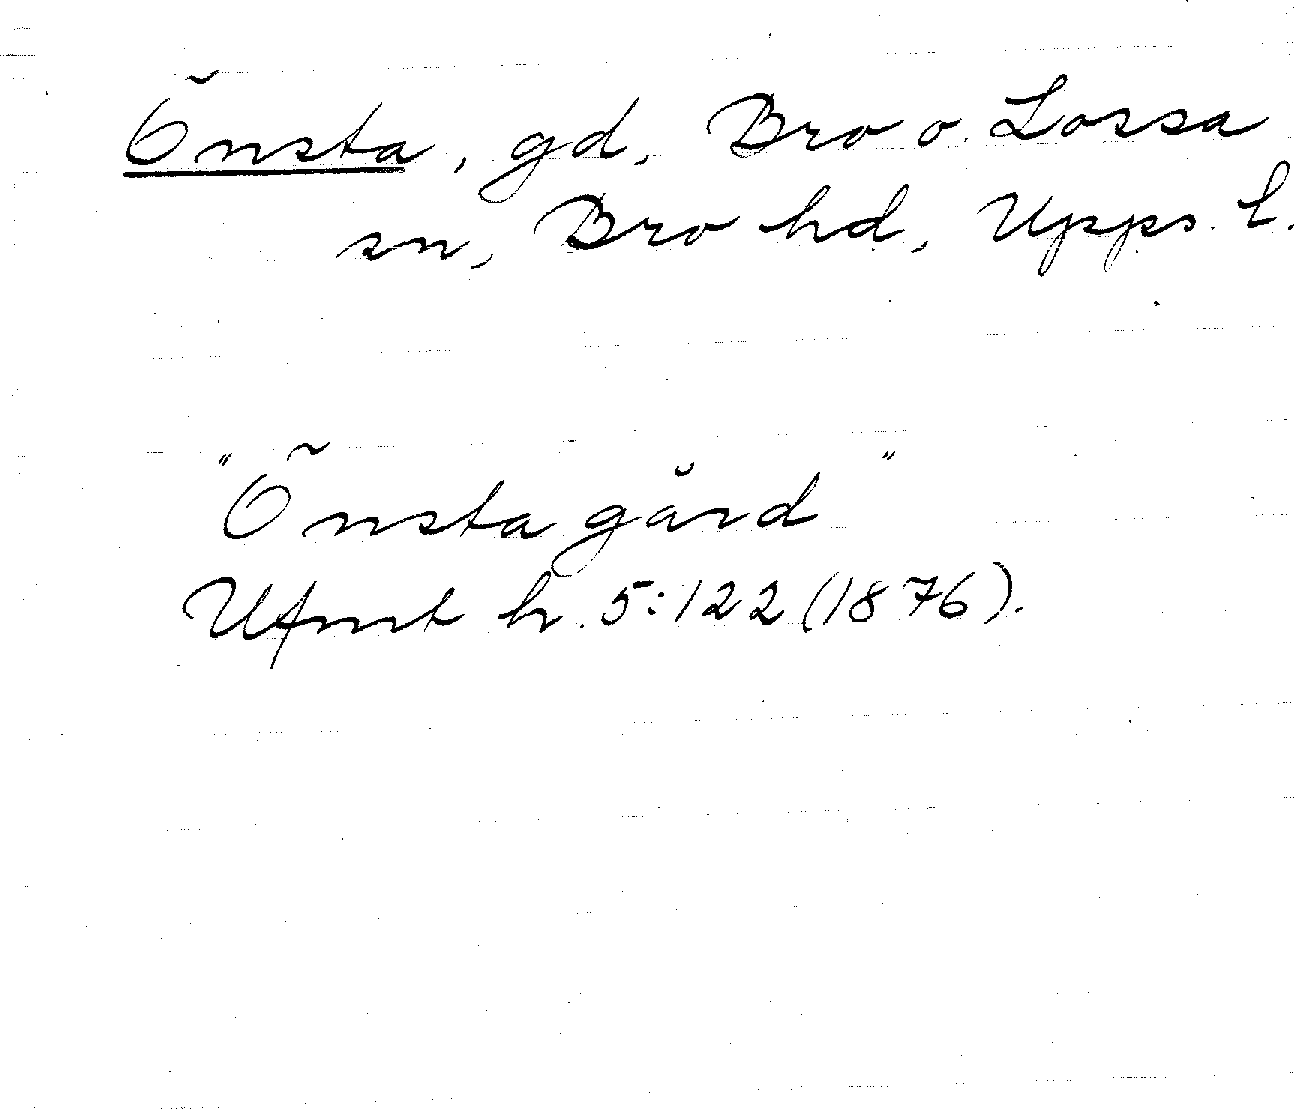 Önsta, gd, Bro o. Lossa
sn, Bro hd, Upps. l.
"Önsta gård"
Ufmt h. 5:122 (1876).